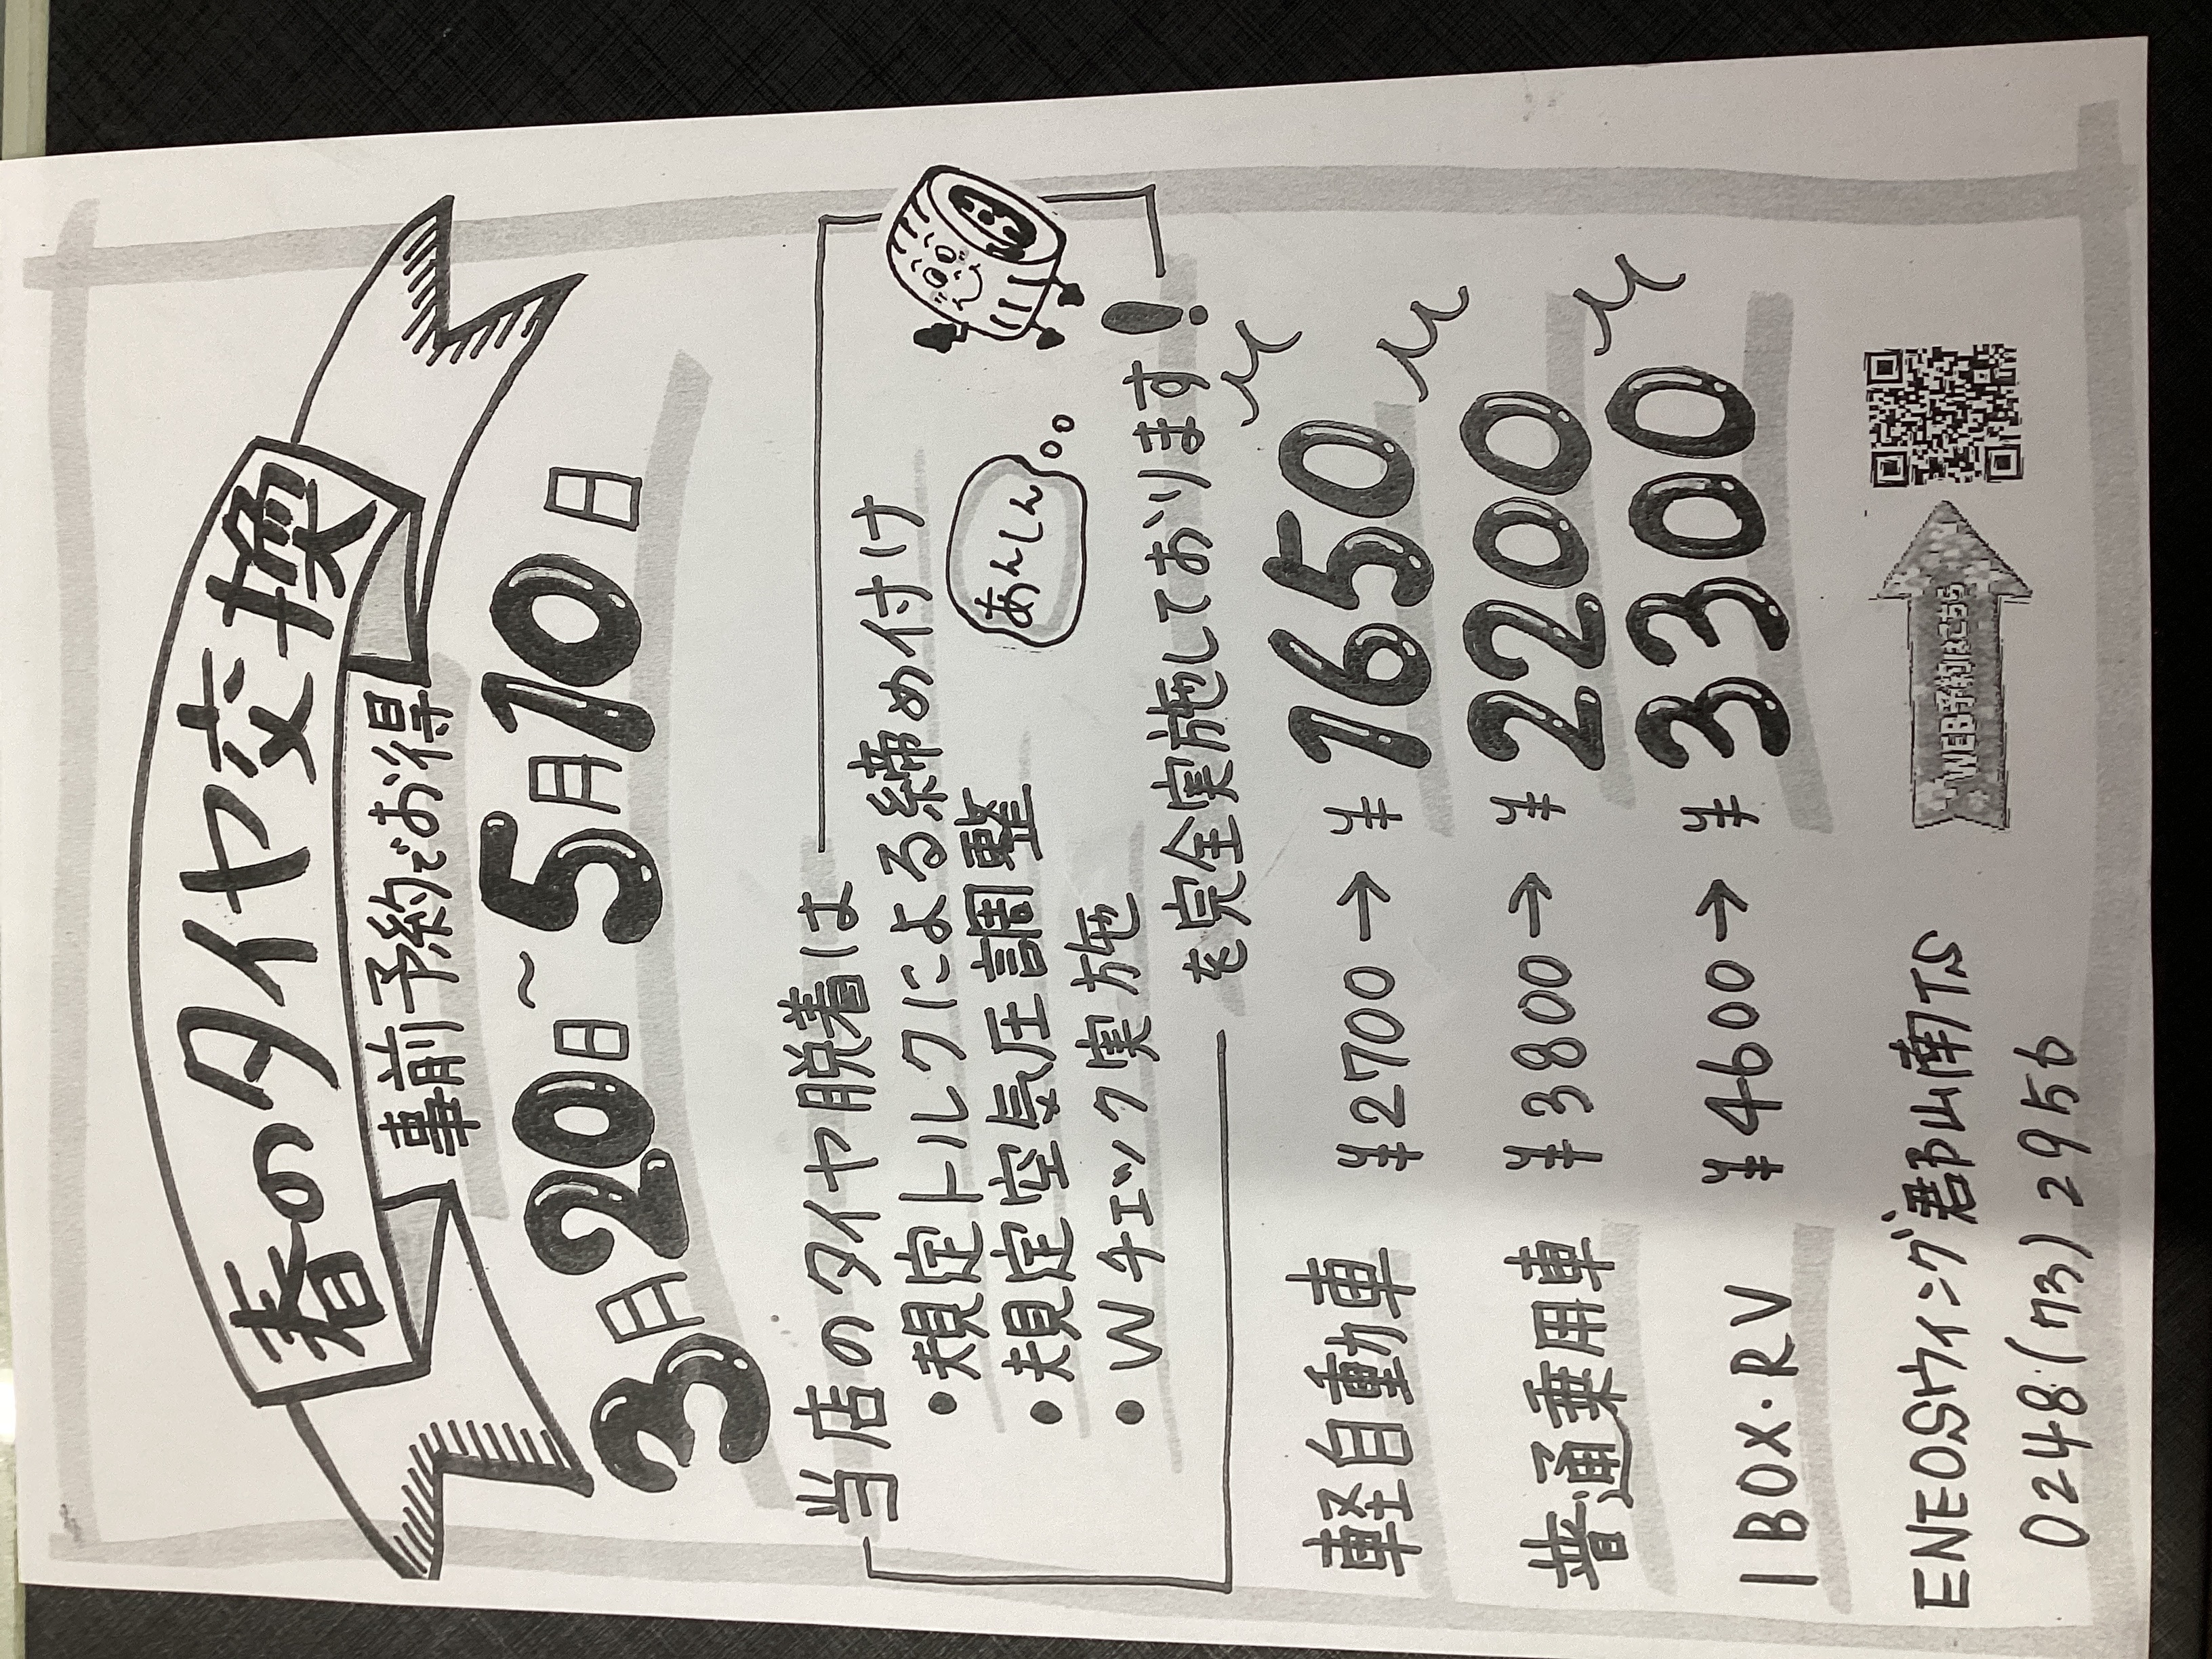 春のタイヤ交換
事前予約でお得
3月20日~5月10日
当店のタイヤ脱着は
・規定トルクによる締め付け
・規定空気圧調整
・Wチェック実施
あんしん
を完全実施しております!
軽自動車 ¥2700→¥1650
普通乗用車 ¥3800→¥2200
1BOX・RV ¥4600→¥3300
ENEOSウイング郡山南TS
WEB予約はこちら
0248(73)2956